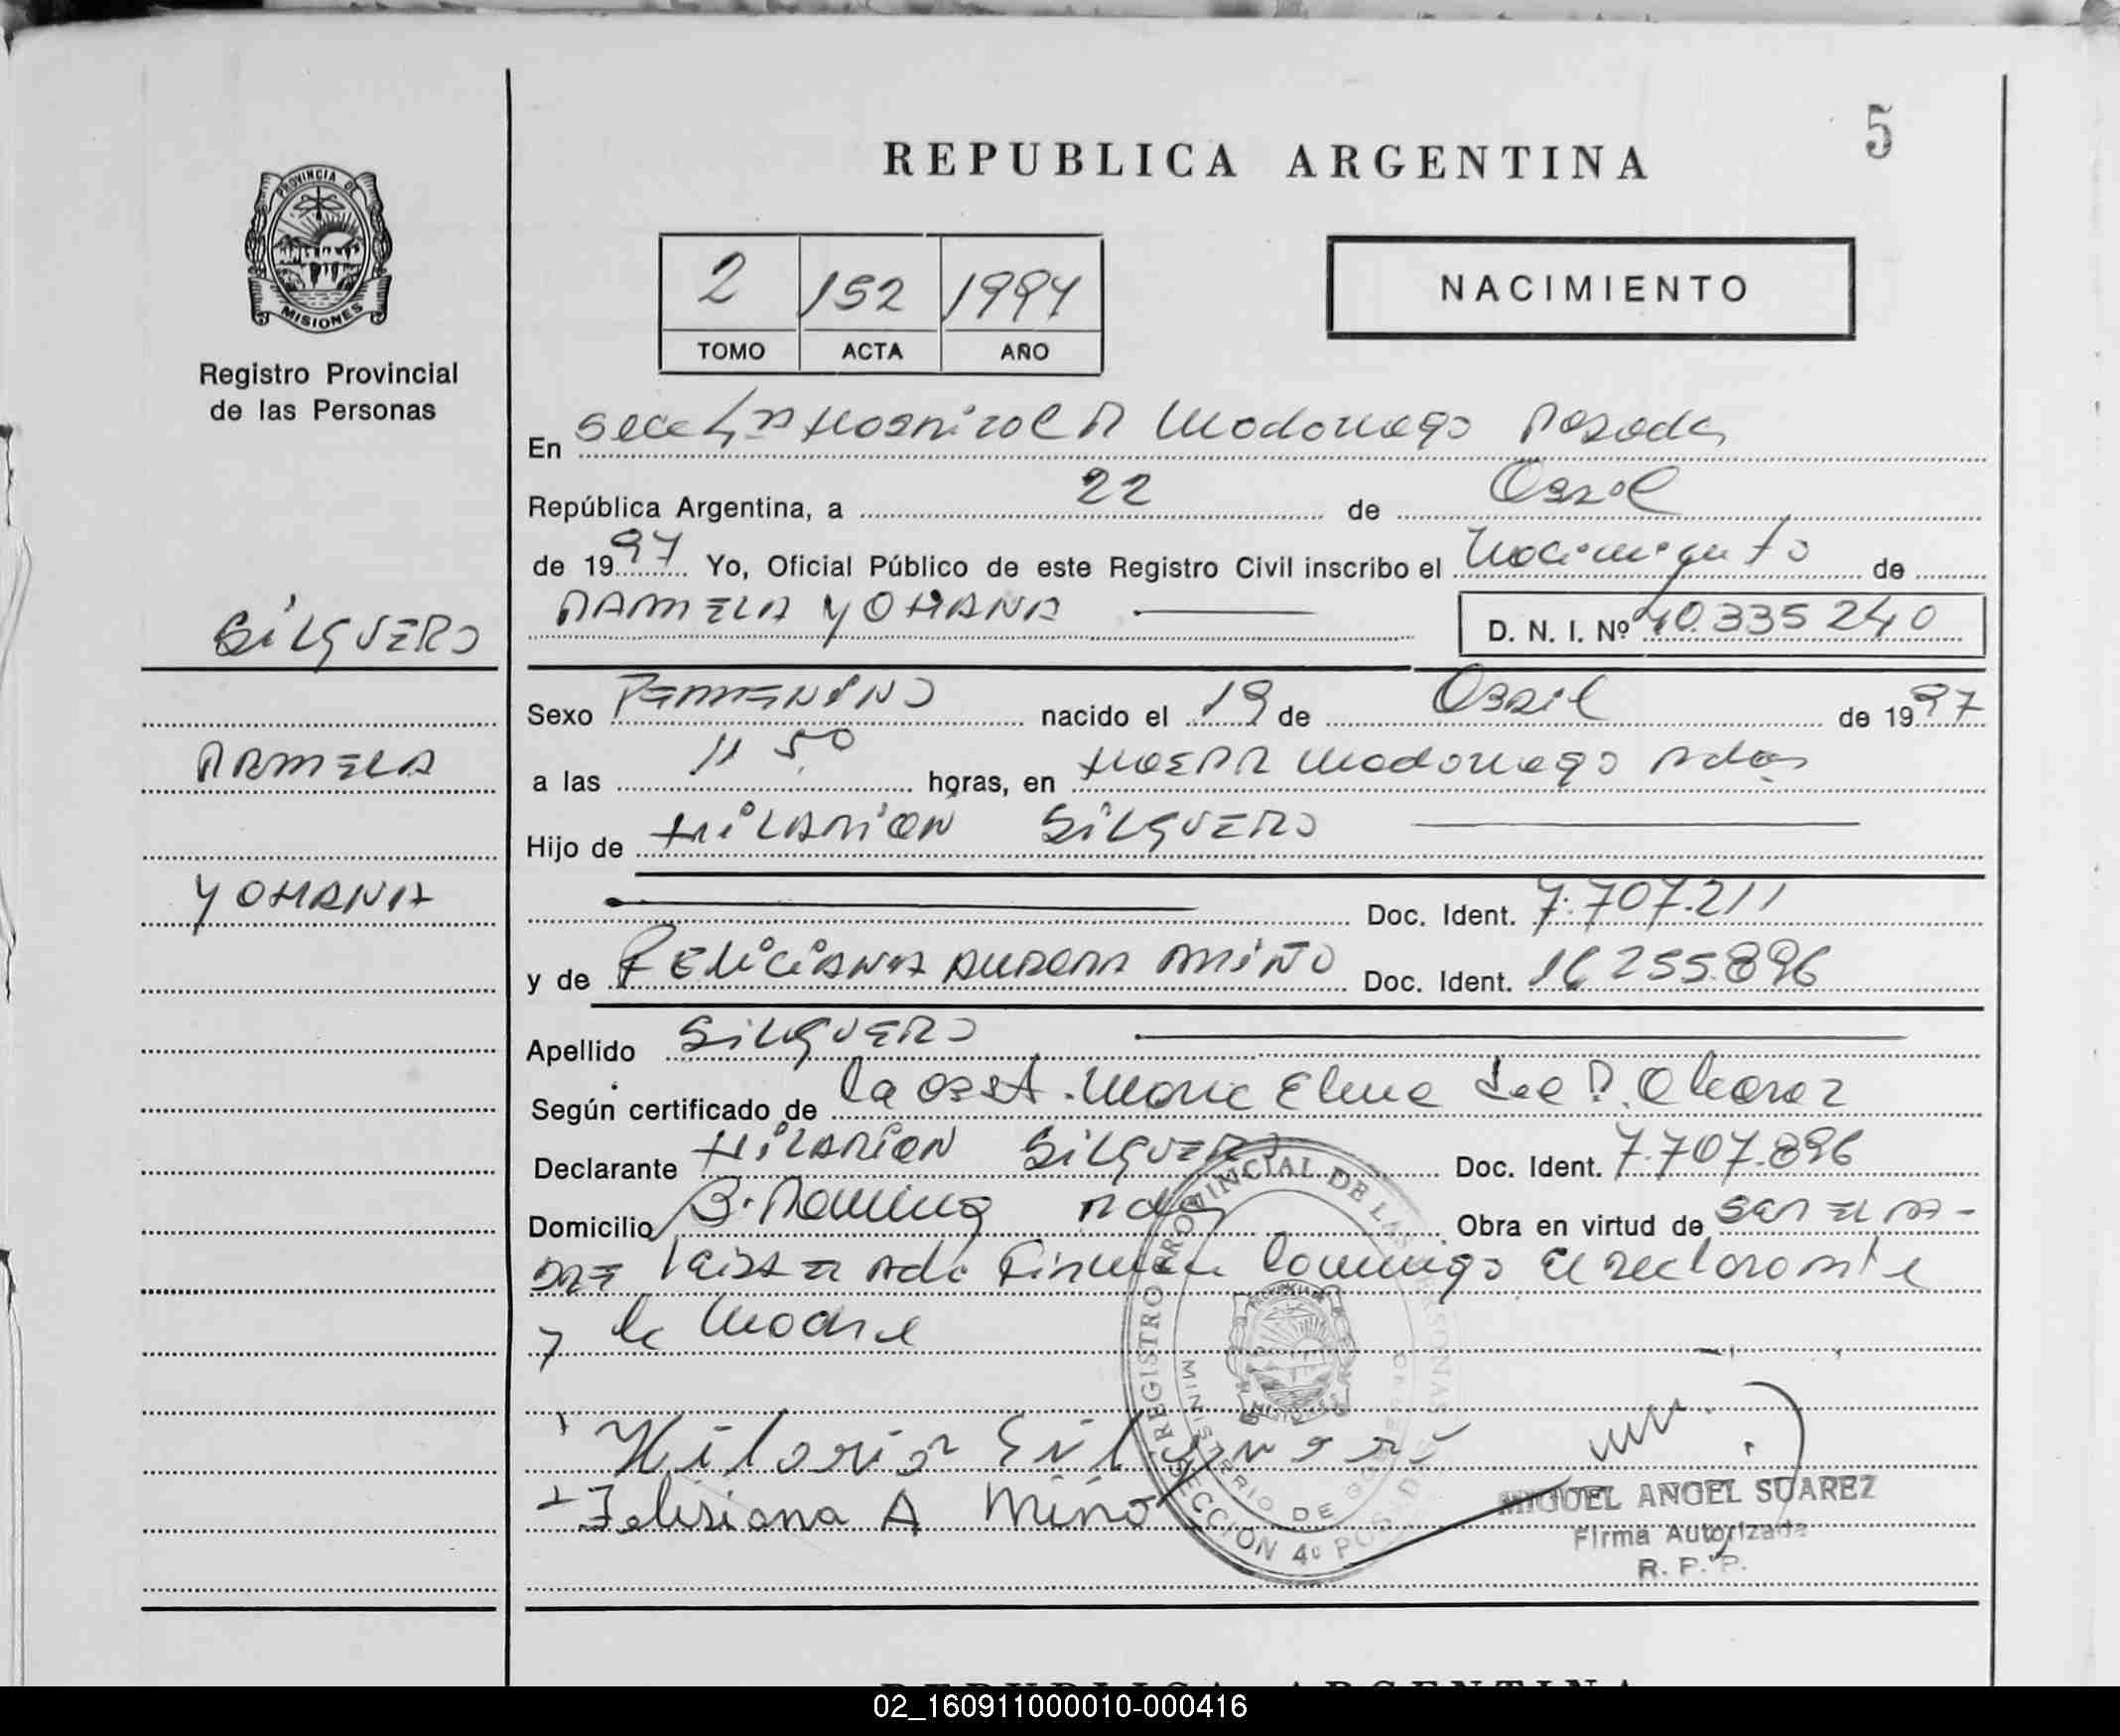 5
REPUBLICA ARGENTINA
PROVINCIA DE
MISIONES
Registro Provincial
de las Personas
2 152 1997
TOMO ACTA AÑO
NACIMIENTO
En Secc 4ta Hospital R Madariaga Posadas
República Argentina, a 22 de Abril
de 1997 Yo, Oficial Público de este Registro Civil inscribo el nacimiento de
PAMELA YOHANA
D. N. I. Nº 40.335240
SILGUERO
PAMELA
YOHANA
Sexo FEMENINO nacido el 19 de Abril de 1997
a las 11 50 horas, en Madariaga Pdas
Hijo de HILARION SILGUERO
Doc. Ident. 7.707.211
y de FELICIANA AURORA MIÑO Doc. Ident. 16 255.896
Apellido SILGUERO
Según certificado de la obst. Elena
Declarante HILARION SILGUERO Doc. Ident. 7.707.896
Domicilio Pdas Obra en virtud de SER EL PA-
DRE el declarante
y la madre
Hilario
Felisiana A Miño
REGISTRO PROVINCIAL DE LAS PERSONAS
MINISTERIO DE GOBIERNO
SECCION 4º POSADAS
MIGUEL ANGEL SUAREZ
Firma Autorizada
R. P. P.
REPUBLICA ARGENTINA
02_160911000010-000416